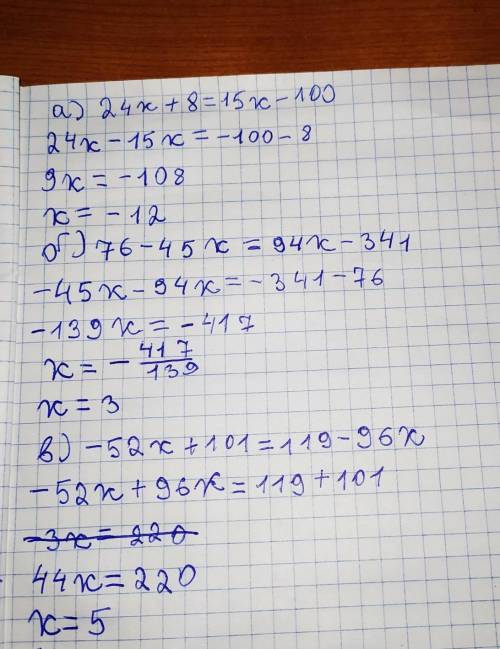 а) 24x + 8 = 15x - 100
24x - 15x = -100 - 8
9x = -108
x = -12
б) 76 - 45x = 94x - 341
-45x - 94x = -341 - 76
-139x = -417
x = - 417/139
x = 3
в) -52x + 101 = 119 - 96x
-52x + 96x = 119 + 101
-3x = 220
44x = 220
x = 5